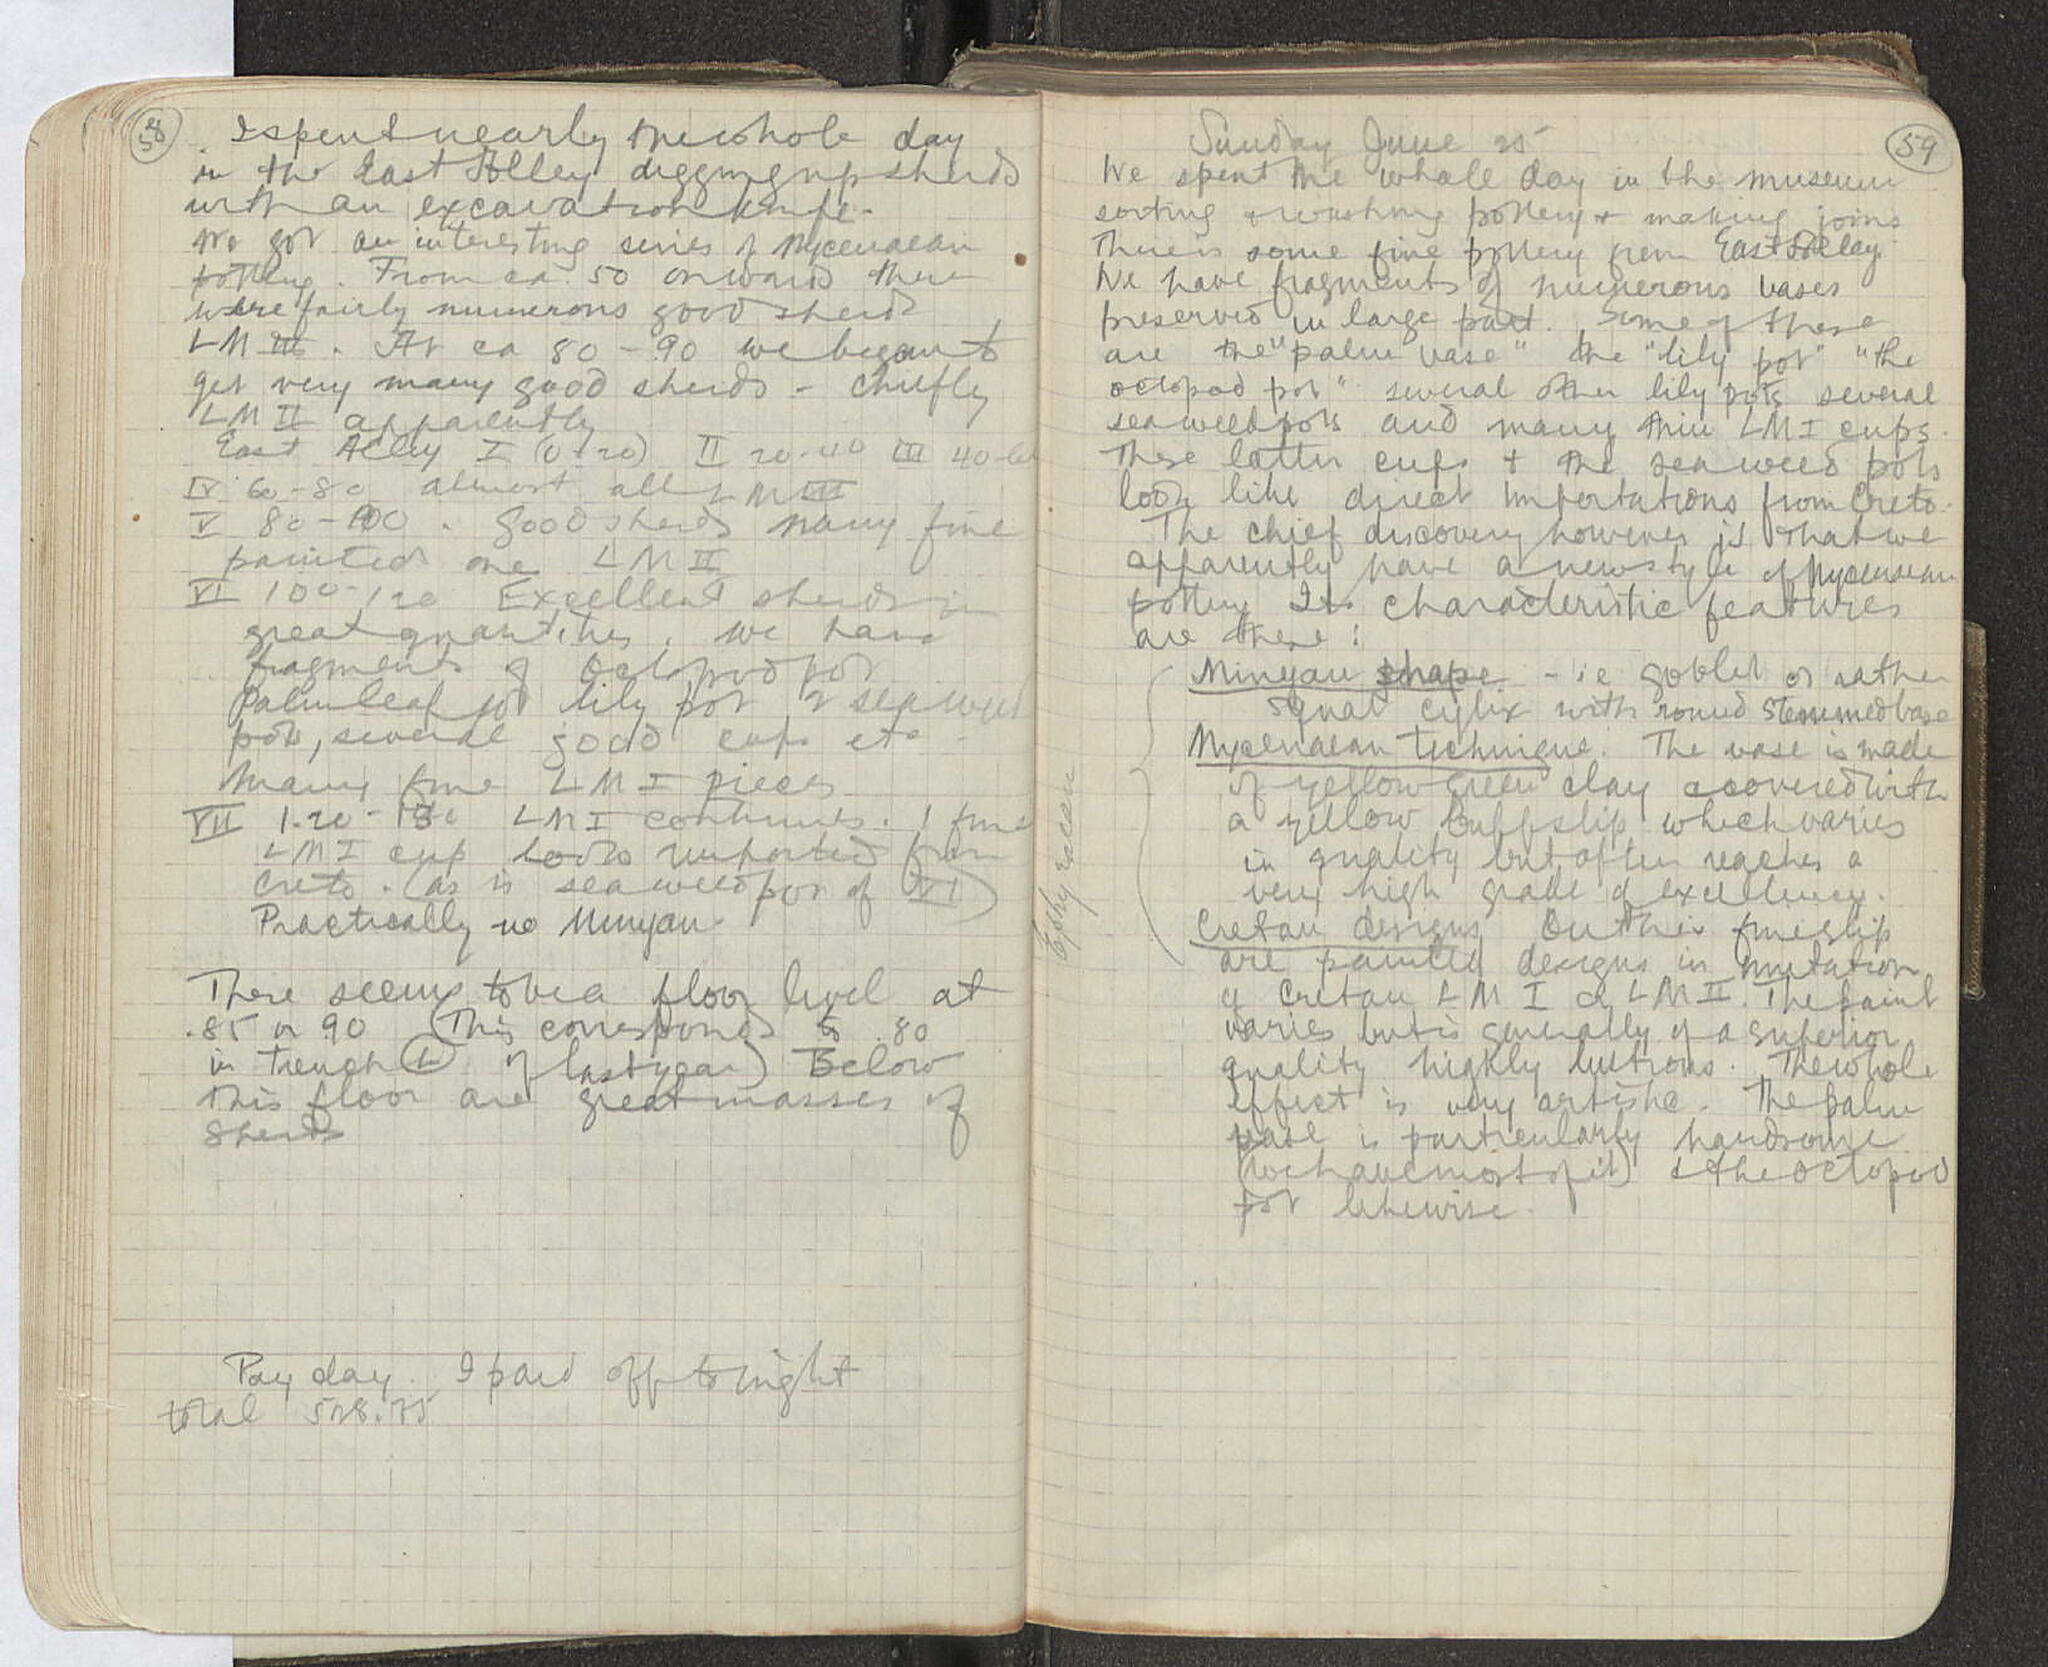 58
I spent nearly the whole day
in the East Alley digging up sherds
with an excavation knife.
We got an interesting series of Mycenaean
pottery. From ca. 50 onwards there
were fairly numerous good sherds
LM III. At ca 80-90 we began to
get very many good sherds - chiefly
LM II apparently
East Alley I (0-20) II 20-40 III 40-60
IV 60-80 almost all LM III
V 80-100. good sherds many fine
painted one LM II
VI 100-120 Excellent sherds in
great quantities. We have
fragments of Octopod pot
Palm leaf pot lily pot & seaweed
pot, several good cups etc.
Many fine LM I pieces
VII 1.20-130 LM I continues. 1 fine
LM I cup looks imported from
Crete. (as is seaweed pot of VI)
Practically no Minyan
There seems to be a floor level at
.85 or .90 (This corresponds to .80
in trench L of last year) Below
this floor are great masses of
sherds
Pay day. I paid off tonight
total 528.75
59
Sunday June 25
We spent the whole day in the museum
sorting & washing pottery & making joins
There is some fine pottery from East Alley.
We have fragments of numerous vases
preserved in large part. Some of these
are the "palm vase" the "lily pot" "the
octopod pot" several other lily pots several
seaweed pots and many thin LM I cups.
These latter cups & the seaweed pots
look like direct importations from Crete.
The chief discovery however is that we
apparently have a new style of Mycenaean
pottery Its characteristic features
are these:
Minyan shape - ie goblet or rather
squat cylix with round stemmed base
Mycenaean technique. The vase is made
of yellow green clay covered with
a yellow buff slip which varies
in quality but often reaches a
very high grade of excellency.
Cretan designs On this fine slip
are painted designs in imitation
of Cretan LM I or LM II. The paint
varies but is generally of a superior
quality highly lustrous. The whole
effect is very artistic. The palm
vase is particularly handsome
(we have most of it) & the octopod
pot likewise.
Ephyraean